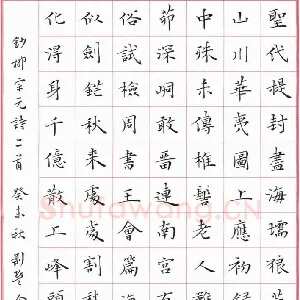 聖代提封盡海壖狼
山川華夷圖上應初
中殊未傳椎髻老人難
茆深峒敢留連南宮有
俗試檢周書王會篇海
似劍鋩秋來處處割
化得身千億散上峰頭
鈔柳宗元詩二首 癸未秋 劉